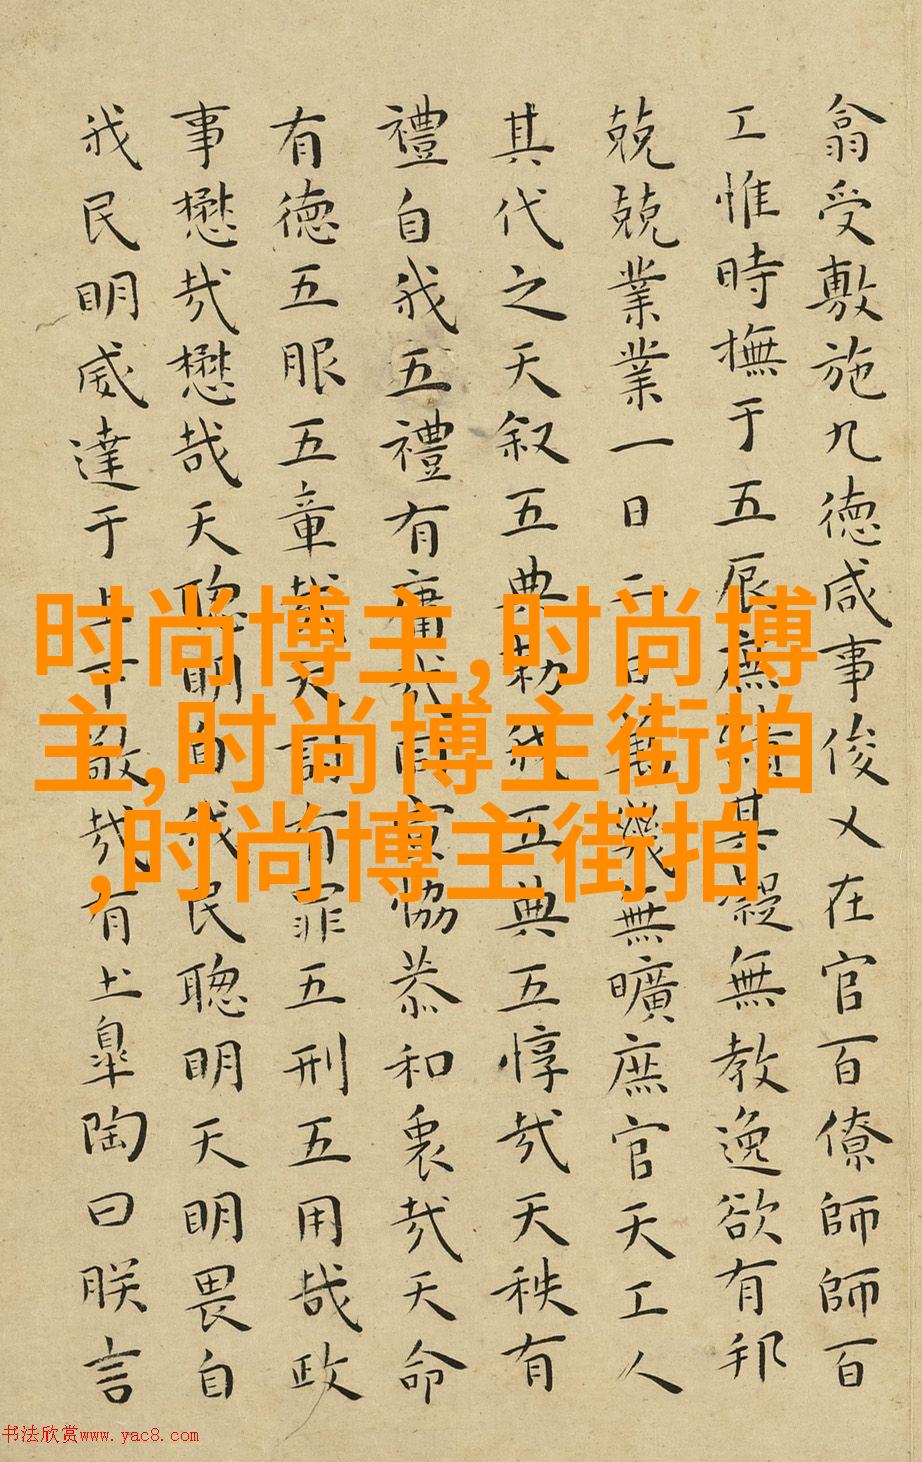 翕受敷施九德咸事俊乂在官百僚師師百
工惟時撫于五辰庶績其凝無教逸欲有邦
兢兢業業一日二日萬幾無曠庶官天工人
其代之天叙五典勑我五典五惇哉天秩有
禮自我五禮有庸哉同寅協恭和衷哉天命
有德五服五章哉天討有罪五刑五用哉政
事懋哉懋哉天聰明自我民聰明天明畏自
我民明威達于上下敬哉有土皋陶曰朕言
时尚博主,时尚博
主,时尚博主街拍
,时尚博主街拍
书法欣赏www.yac8.com